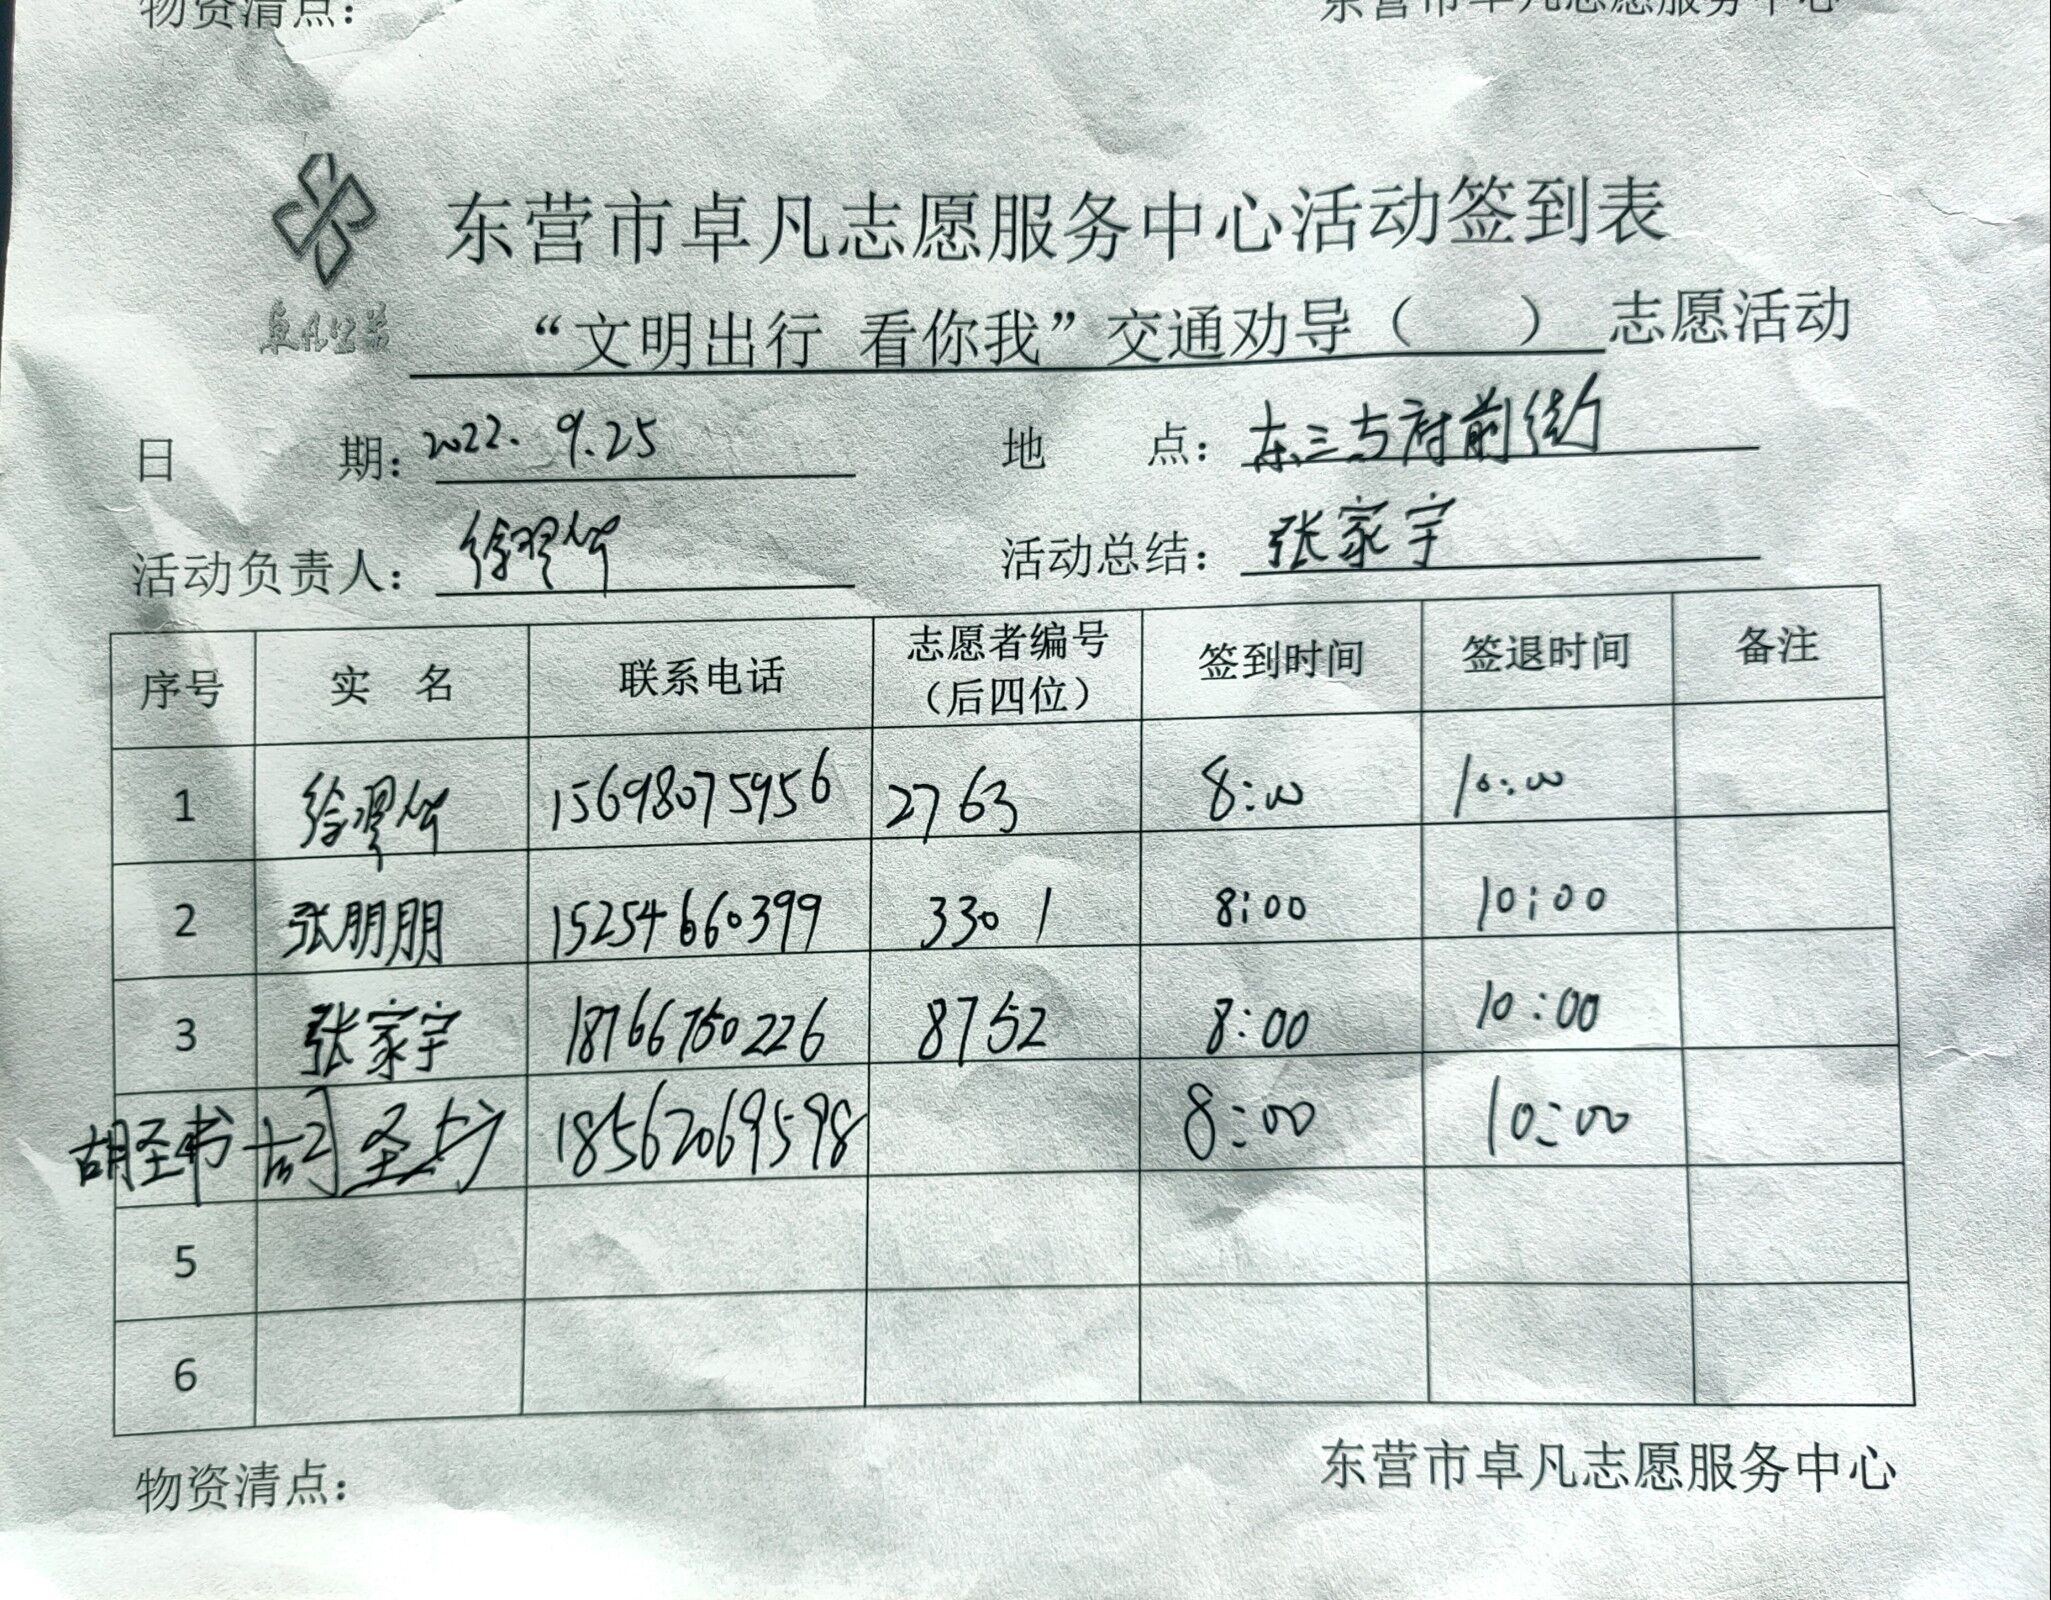 物资清点：
东营市卓凡志愿服务中心
卓凡公益
东营市卓凡志愿服务中心活动签到表
“文明出行 看你我”交通劝导（ ） 志愿活动
日 期：2022.9.25 地 点：东三与府前街
活动负责人：徐翠 活动总结：张家宇
序号 实 名 联系电话 志愿者编号（后四位） 签到时间 签退时间 备注
1 徐翠 15698075956 2763 8:00 10:00
2 张朋朋 15254660399 3301 8:00 10:00
3 张家宇 18766750226 8752 8:00 10:00
胡圣书 胡圣书 18562069598 8:00 10:00
5
6
物资清点：
东营市卓凡志愿服务中心